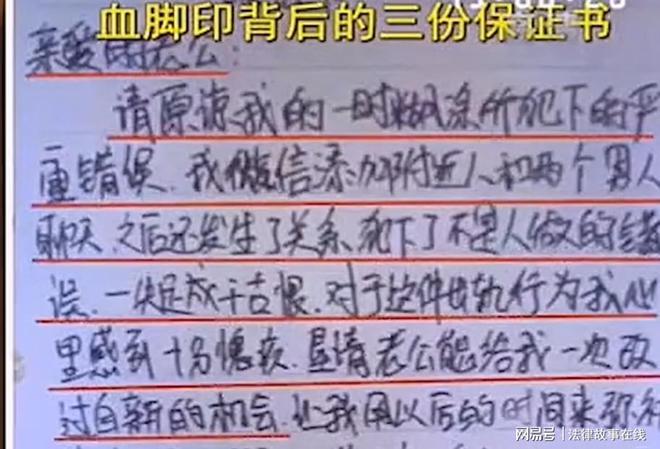 血脚印背后的三份保证书
亲爱的老公:
请原谅我的一时糊涂所犯下的严
重错误、我微信添加附近人和两个男人
聊天、之后还发生了关系、犯下了不是人做的错
误、一失足成千古恨、对于这件出轨行为我心
里感到十分愧疚、恳请老公能给我一次改
过自新的机会、让我用以后的时间来弥补
网易号 | 法律故事在线